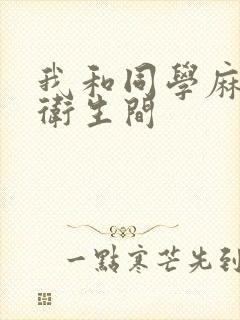 我和同學麻
衛生間
一點寒芒先到